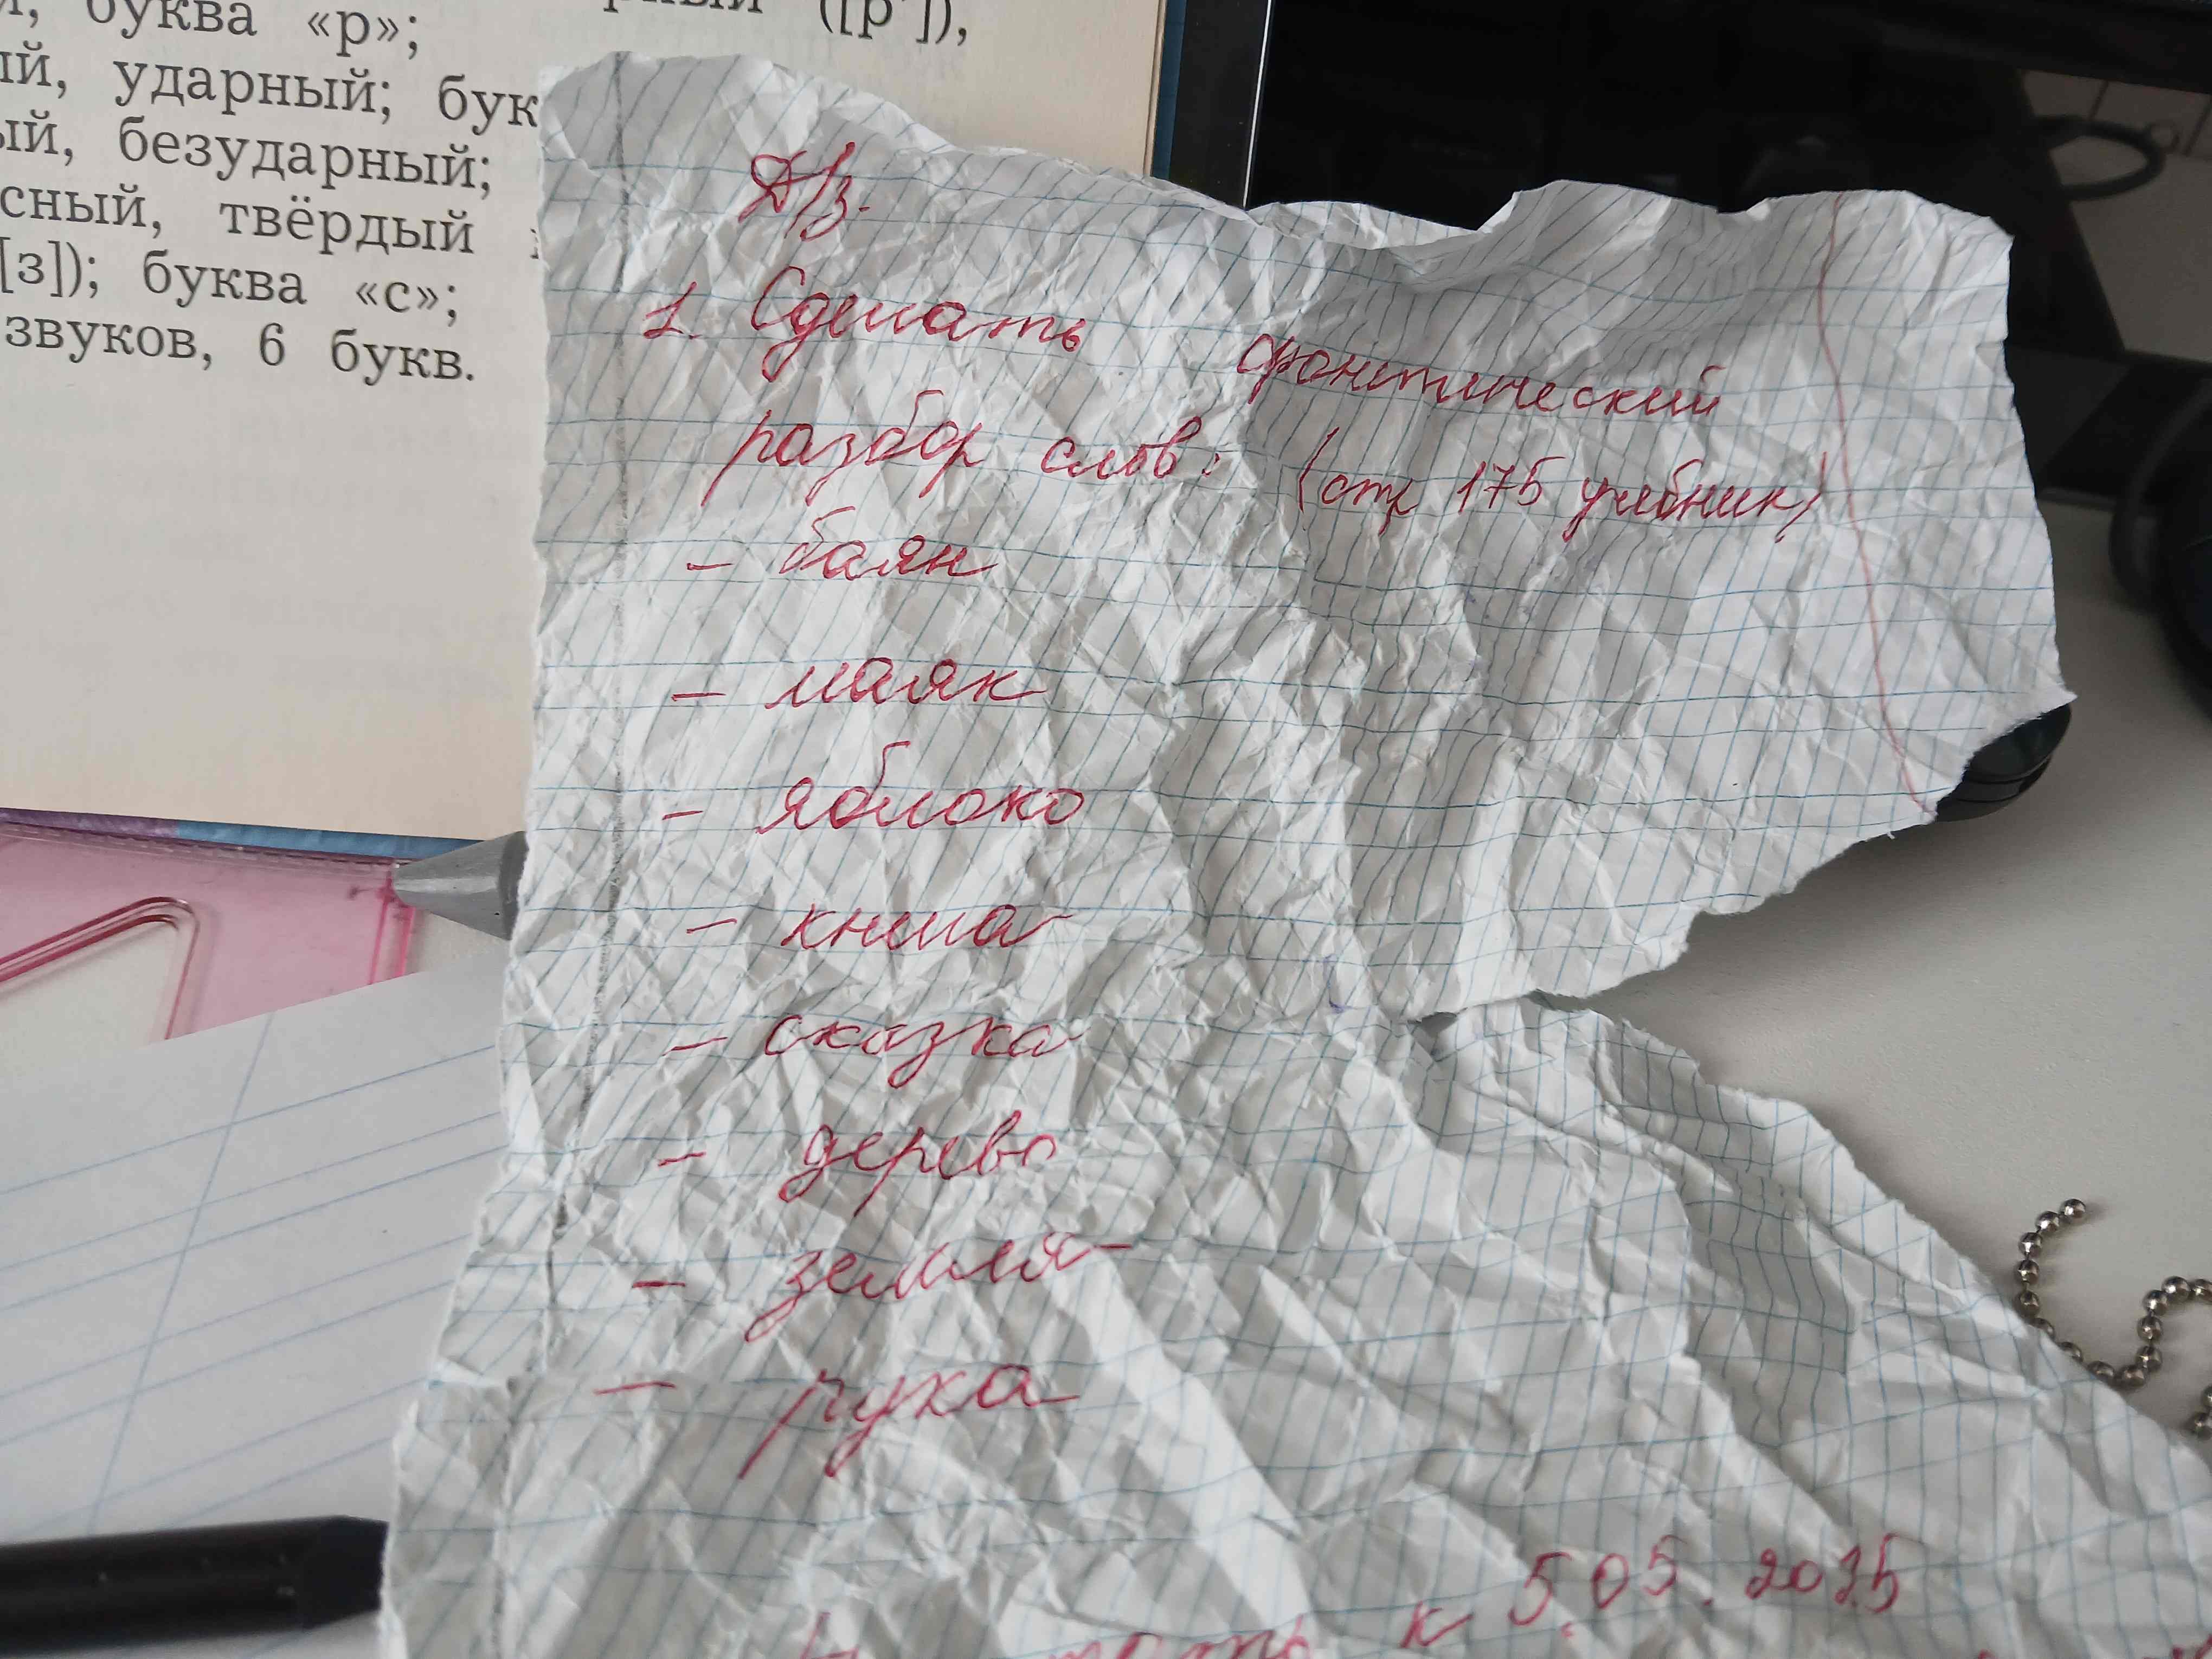 буква «р»;
([р']),
ударный; бук
безударный;
твёрдый
[з]); буква «с»;
звуков, 6 букв.
Д/з.
1. Сделать фонетический
разбор слов: (стр 175 учебник)
- баян
- маяк
- яблоко
- книга
- сказка
- дерево
- земля
- рука
к 5.05.2025